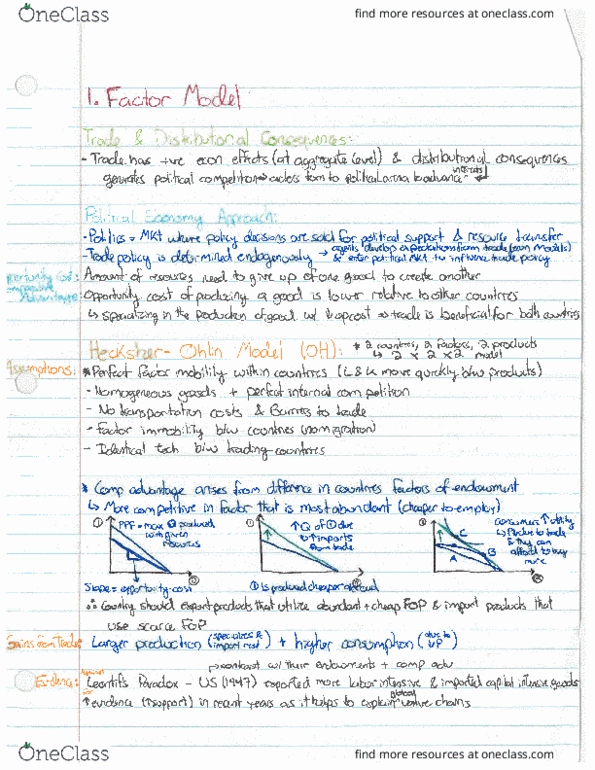 OneClass
find more resources at oneclass.com
1. Factor Model
Trade & Distributional Consequences:
- Trade has +ve econ effects (at aggregate level) & distributional consequences
generates political competition → actors turn to political arena to advance interests
Political Economy Approach:
- Politics = MKT where policy decisions are sold for political support & resource transfer
- Trade policy is determined endogenously → agents develop expectations from trade (econ models)
& enter political MKT to influence trade policy
Opportunity Cost: Amount of resources need to give up of one good to create another
Comparative Advantage: Opportunity cost of producing a good is lower relative to other countries
↳ specializing in the production of good w/ ↓ opp cost → trade is beneficial for both countries
Hecksher-Ohlin Model (OH): * 2 countries, 2 factors, 2 products
↳ 2 x 2 x 2 model
Assumptions: * Perfect factor mobility within countries (L & K move quickly b/w products)
- Homogeneous goods + perfect internal competition
- No transportation costs & Barriers to trade
- Factor immobility b/w countries (no migration)
- Identical tech b/w trading countries
* Comp advantage arises from difference in countries factors of endowment
↳ More competitive in factor that is most abundant (cheaper to employ)
① PPF = max Q produced with given resources ②
① ↑ Q of ① due to imports from trade
① consumers ↑ utility
↳ Due to trade & they can afford to buy more
A B C
Slope = opportunity cost
① is produced cheaper abroad
∴ Country should export products that utilize abundant + cheap FOP & import products that
use scarce FOP
Gains from Trade: Larger production (specialize & import rest) + higher consumption (due to ↓P)
→ contrast w/ their endowments + comp adv
Evidence: Against Leontifs Paradox - US (1947) exported more labor intensive & imported capital intensive goods
↑ evidence (↑ support) in recent years as it helps to explain global value chains
OneClass
find more resources at oneclass.com